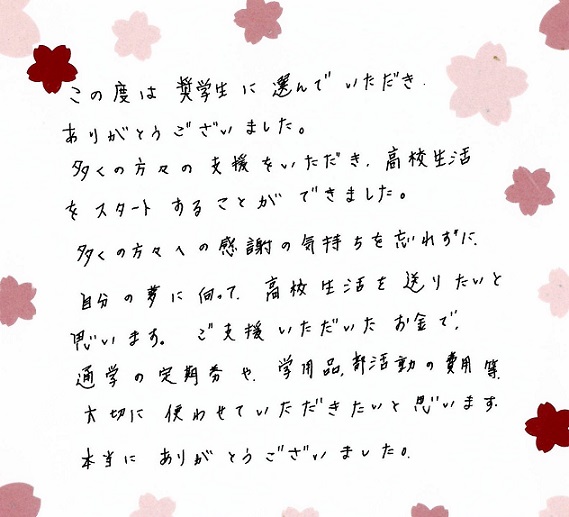 この度は 奨学生に 選んで いただき、
ありがとうございました。
多くの方々の 支援をいただき、高校生活
をスタートすることが できました。
多くの方々への感謝の気持ちを忘れずに、
自分の夢に向って、高校生活を送りたいと
思います。ご支援いただいたお金で、
通学の定期券や、学用品、部活動の費用等、
大切に 使わせていただきたいと思います。
本当に ありがとうございました。